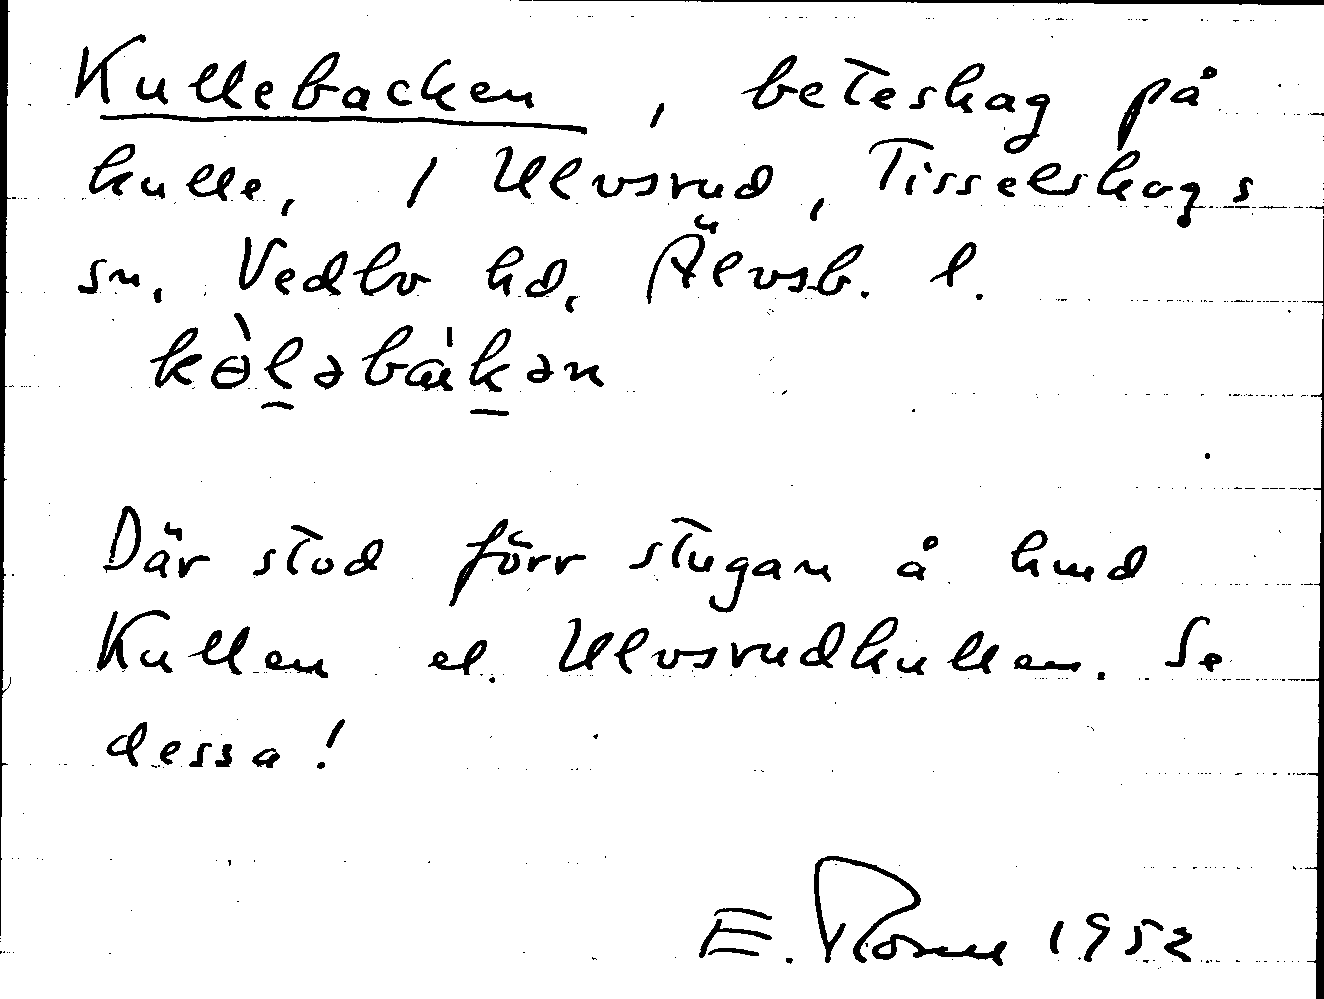 Kullebacken, beteshag på
kulle, / Ulvsrud, Tisselskogs
sn, Vedbo hd, Älvsb. l.
kɵ̀l̲əbák̲ən
Där stod förr stugan å hmd
Kullen el. Ulvsrudkullen. Se
dessa!
E. 1952